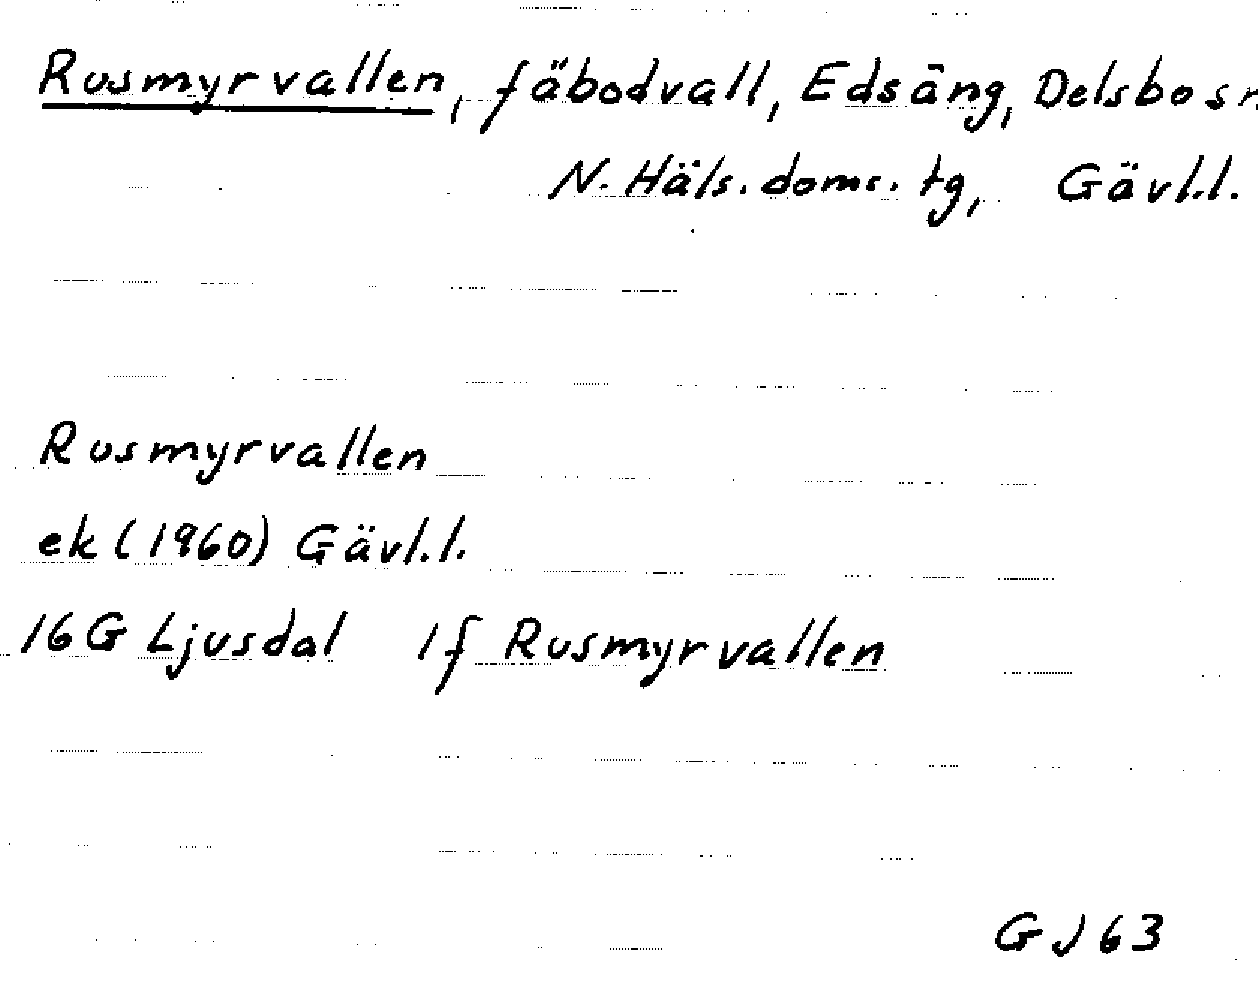 Rusmyrvallen, fäbodvall, Edsäng, Delsbo sn
N. Häls. doms. tg, Gävl.l.
Rusmyrvallen
ek (1960) Gävl.l.
16G Ljusdal 1f Rusmyrvallen
GJ 63